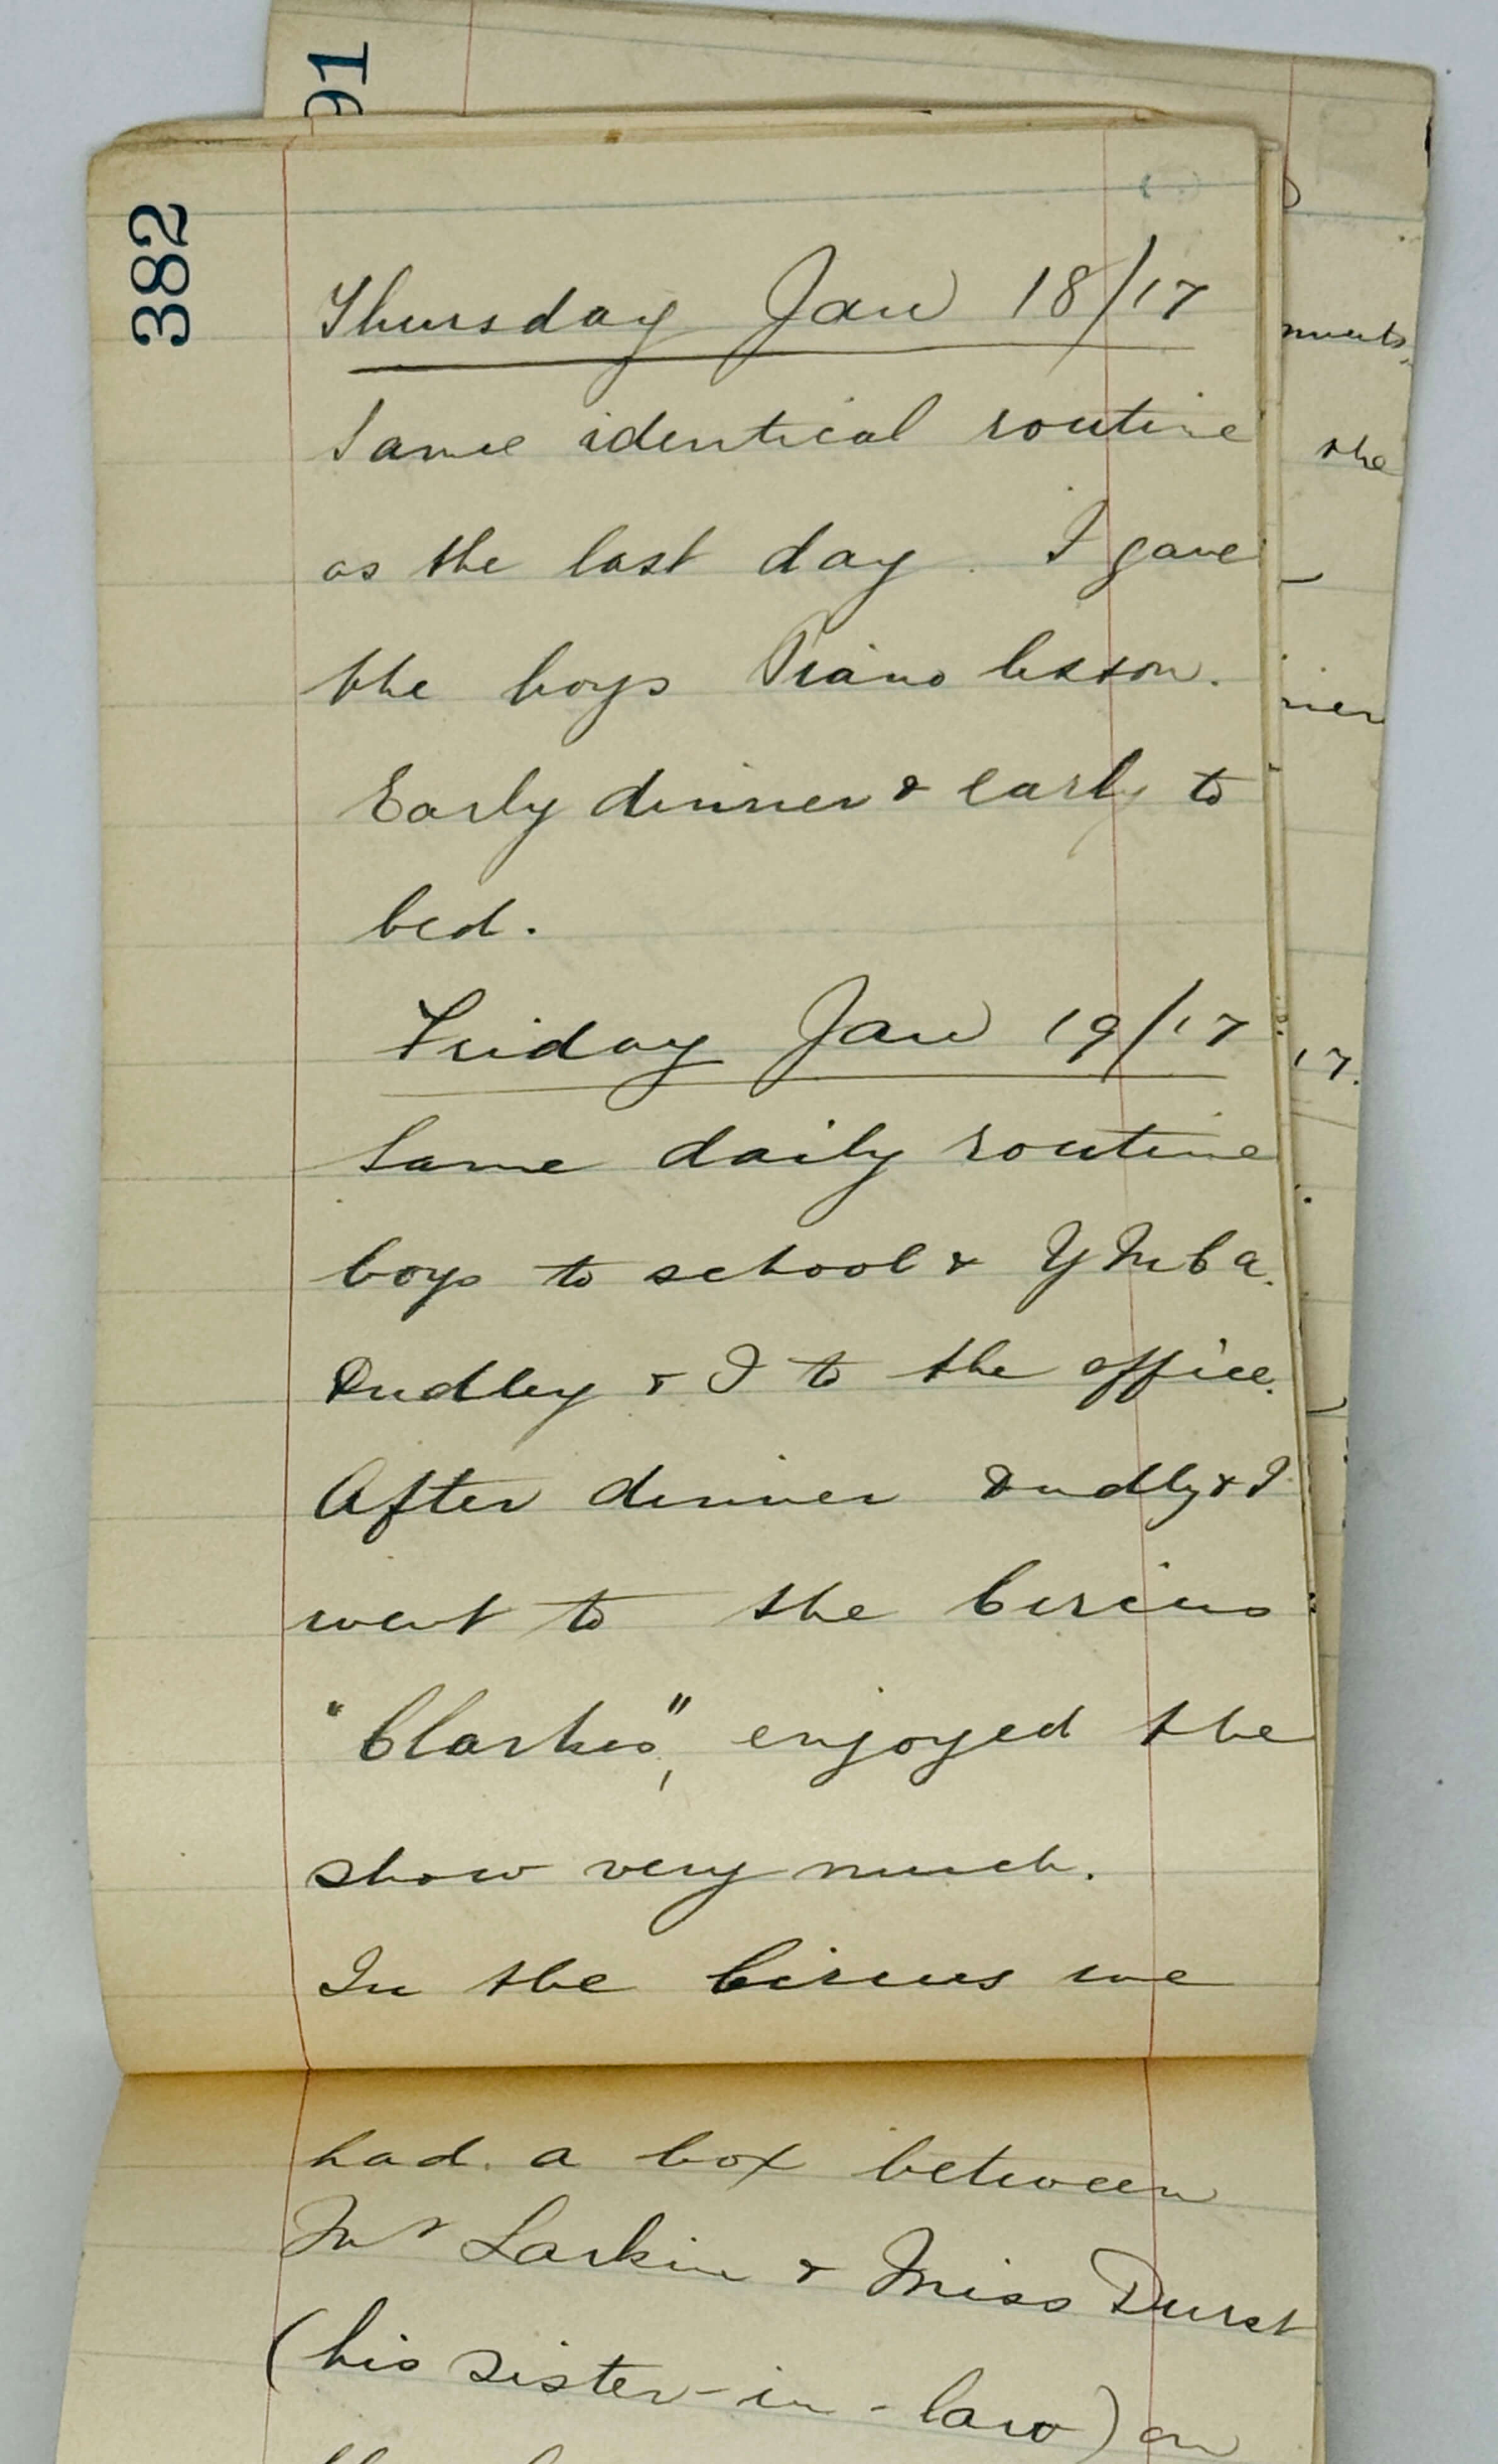 91
382
Thursday Jan 18/17
Same identical routine
as the last day. I gave
the boys Piano lesson.
Early dinner & early to
bed.
Friday Jan 19/17
Same daily routine
boys to school & YMCA.
Dudley & I to the office.
After dinner Dudly & I
went to the Circus
"Clarkes", enjoyed the
show very much.
In the Circus we
had a box between
Mr Larkin & Miss Durst
(his sister-in-law) on
the
17.